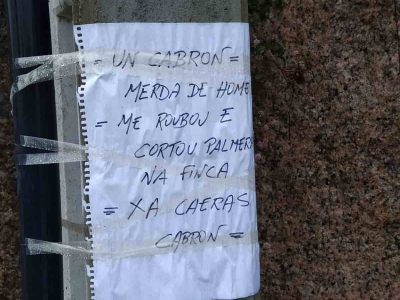 = UN CABRON =
MERDA DE HOME
= ME ROUBOU E
CORTOU PALMERA
NA FINCA
= XA CAERAS
CABRON =